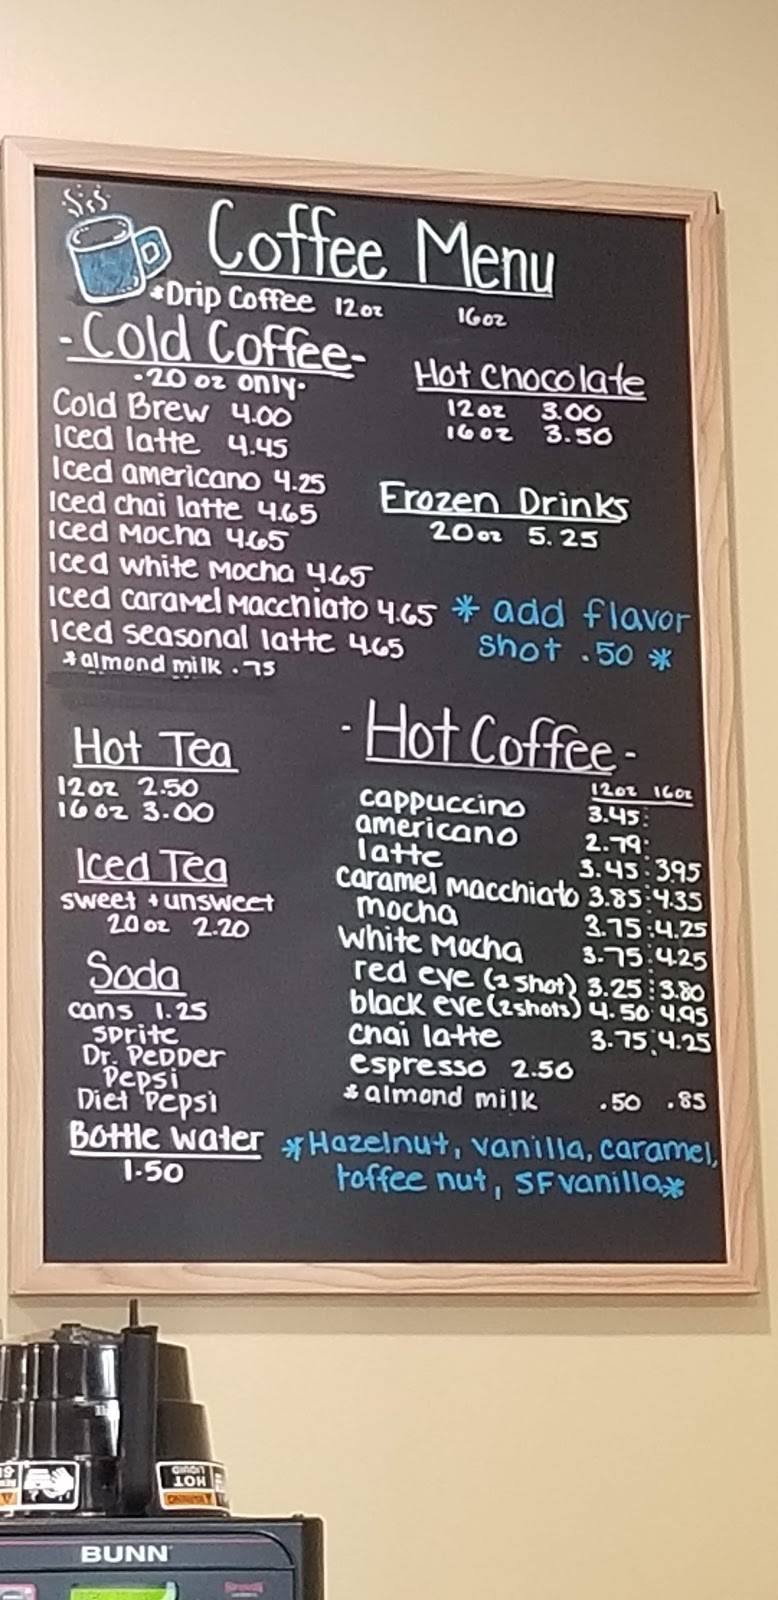 Coffee Menu
*Drip Coffee 12oz 16oz
- Cold Coffee -
·20 oz only·
Cold Brew 4.00
Iced latte 4.45
Iced americano 4.25
Iced chai latte 4.65
Iced Mocha 4.65
Iced white Mocha 4.65
Iced caramel Macchiato 4.65
Iced seasonal latte 4.65
*almond milk .75
Hot Chocolate
12oz 3.00
16oz 3.50
Frozen Drinks
20oz 5.25
* add flavor
shot .50 *
Hot Tea
12oz 2.50
16oz 3.00
Iced Tea
sweet + unsweet
20oz 2.20
Soda
cans 1.25
Sprite
Dr. Pepper
Pepsi
Diet Pepsi
Bottle Water
1.50
- Hot Coffee -
12oz 16oz
cappuccino 3.45
americano 2.79
latte 3.45 3.95
caramel macchiato 3.85 4.35
mocha 3.75 4.25
white Mocha 3.75 4.25
red eye (1 shot) 3.25 3.80
black eye (2 shots) 4.50 4.95
chai latte 3.75 4.25
espresso 2.50
*almond milk .50 .85
*Hazelnut, vanilla, caramel,
toffee nut, SF vanilla*
HOT
LIQUID
WARNING
BUNN